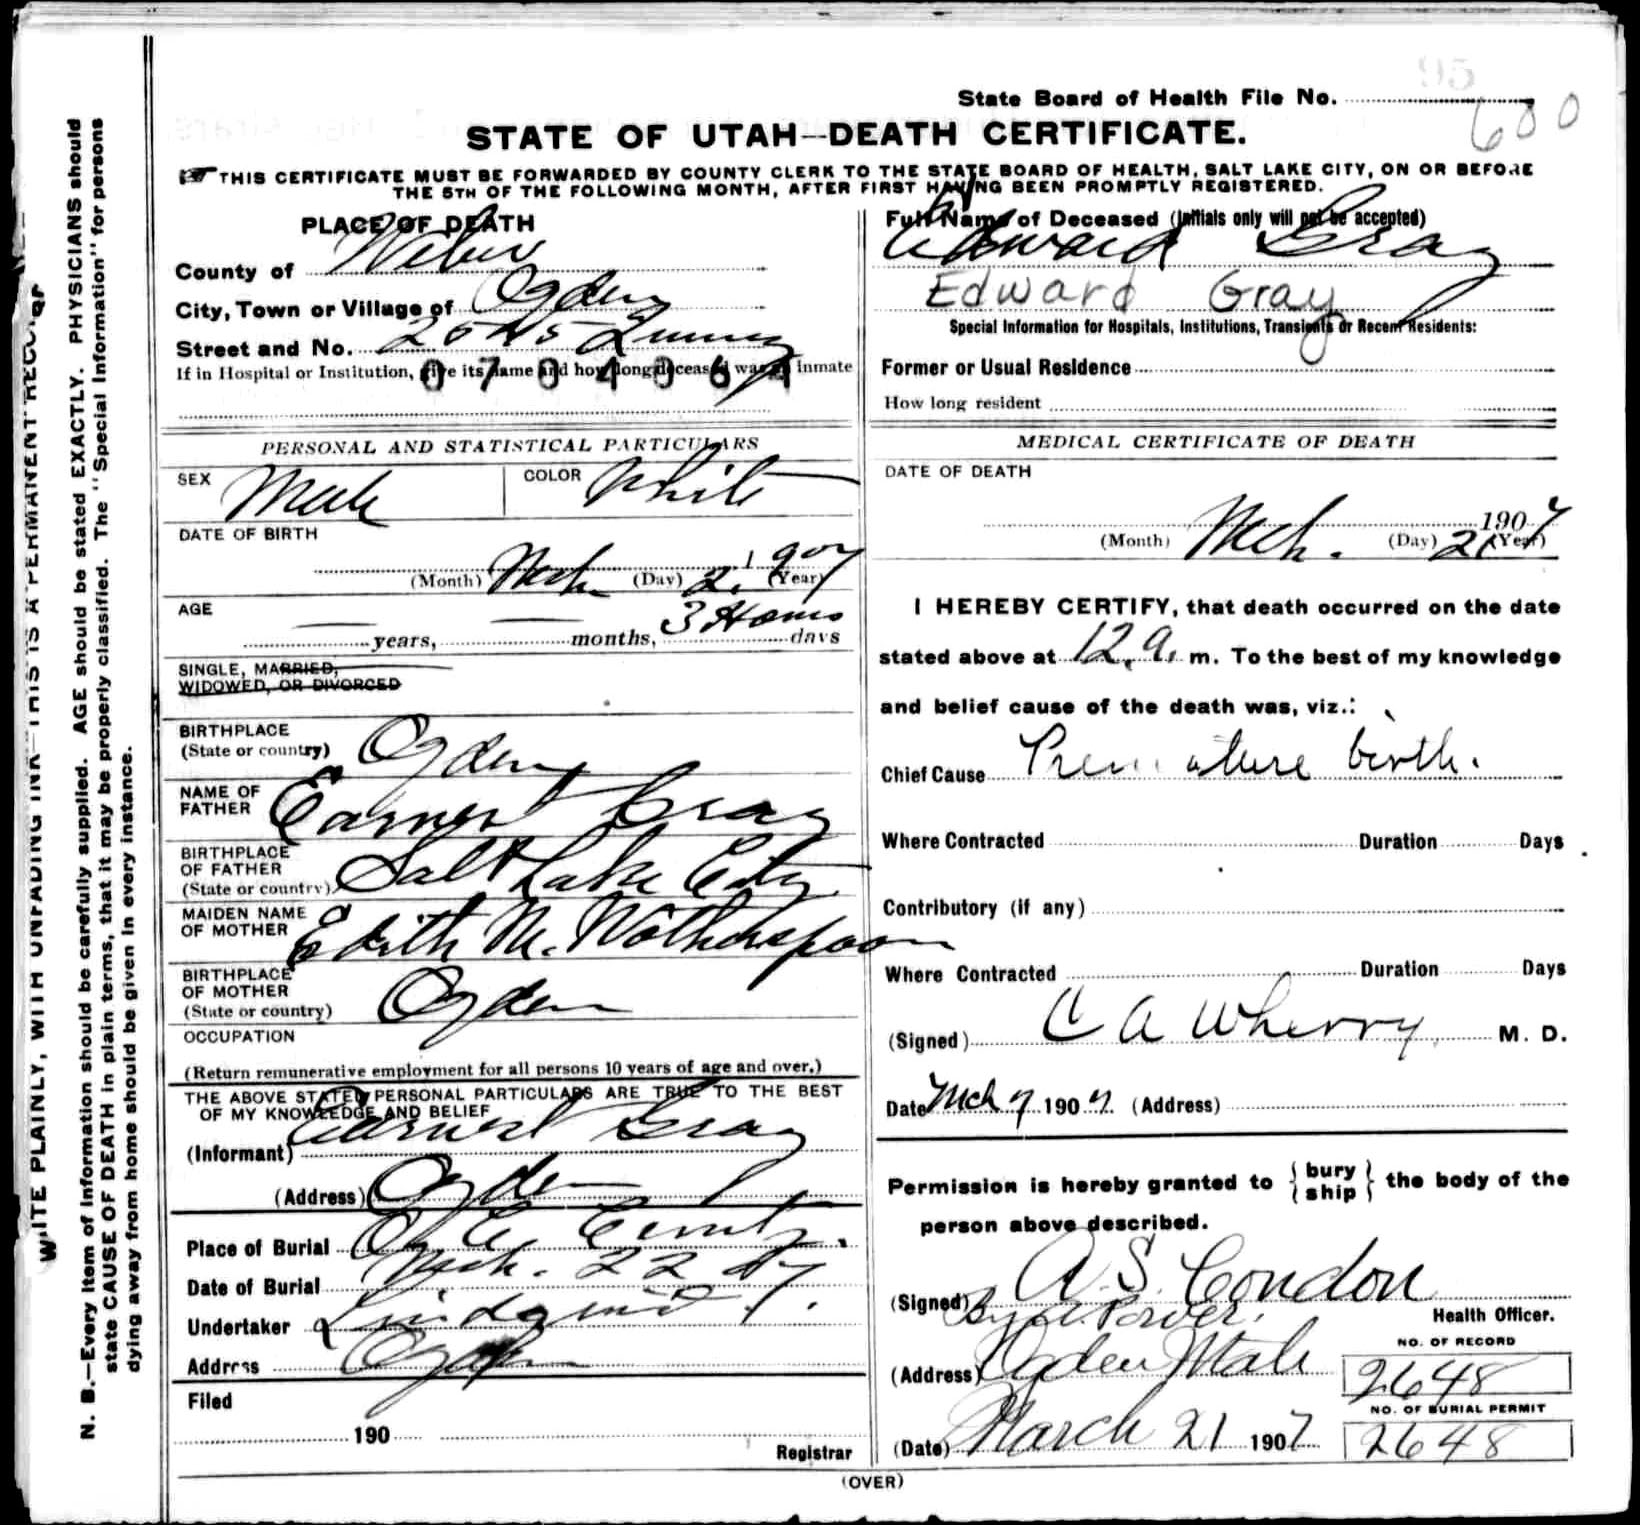 95
State Board of Health File No.
600
STATE OF UTAH—DEATH CERTIFICATE.
THIS CERTIFICATE MUST BE FORWARDED BY COUNTY CLERK TO THE STATE BOARD OF HEALTH, SALT LAKE CITY, ON OR BEFORE
THE 5TH OF THE FOLLOWING MONTH, AFTER FIRST HAVING BEEN PROMPTLY REGISTERED.
PLACE OF DEATH
County of Weber
City, Town or Village of Ogden
Street and No. 2545 Quincy
If in Hospital or Institution, give its name and how long deceased was an inmate
PERSONAL AND STATISTICAL PARTICULARS
SEX Male COLOR White
DATE OF BIRTH
(Month) Mch (Day) 21 (Year) 1907
AGE
years, months, 3 Hours days
SINGLE, MARRIED,
WIDOWED, OR DIVORCED
BIRTHPLACE
(State or country) Ogden
NAME OF
FATHER Earnest Gray
BIRTHPLACE
OF FATHER
(State or country) Salt Lake City
MAIDEN NAME
OF MOTHER Edith M. Wotherspoon
BIRTHPLACE
OF MOTHER
(State or country) Ogden
OCCUPATION
(Return remunerative employment for all persons 10 years of age and over.)
THE ABOVE STATED PERSONAL PARTICULARS ARE TRUE TO THE BEST
OF MY KNOWLEDGE AND BELIEF
(Informant) Earnest Gray
(Address) Ogden
Place of Burial
Date of Burial Mch. 22 07
Undertaker Lindquist
Address Ogden
Filed
190
Registrar
Full Name of Deceased (Initials only will not be accepted)
Edward Gray
Edward Gray
Special Information for Hospitals, Institutions, Transients or Recent Residents:
Former or Usual Residence
How long resident
MEDICAL CERTIFICATE OF DEATH
DATE OF DEATH
(Month) Mch. (Day) 21 1907 (Year)
I HEREBY CERTIFY, that death occurred on the date
stated above at 12 a. m. To the best of my knowledge
and belief cause of the death was, viz.:
Chief Cause Premature birth.
Where Contracted Duration Days
Contributory (if any)
Where Contracted Duration Days
(Signed) C A Wherry M. D.
Date Mch 1907. (Address)
Permission is hereby granted to {bury
ship} the body of the
person above described.
(Signed) A. S. Condon
Health Officer.
NO. OF RECORD
(Address) Ogden Utah 2648
NO. OF BURIAL PERMIT
(Date) March 21 1907 2648
(OVER)
N. B.—Every item of information should be carefully supplied. AGE should be stated EXACTLY. PHYSICIANS should
state CAUSE OF DEATH in plain terms, that it may be properly classified. The "Special Information" for persons
dying away from home should be given in every instance.
WRITE PLAINLY, WITH UNFADING INK—THIS IS A PERMANENT RECORD